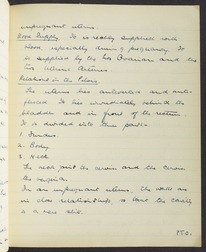 unpregnant uterus.
Blood Supply. It is really supplied with
blood especially during pregnancy. It
is supplied by the two Ovarian and the
two Uterine Arteries.
Relations in the Pelvis.
The uterus lies anteverted and ante-
flexed. It lies immediately behind the
bladder and in front of the rectum.
It is divided into three parts:-
1. Fundus.
2. Body.
3. Neck.
The neck joins the and the cervix
the vagina.
In an unpregnant uterus, the walls are
in close relationship, so that the cavity
is a mere slit.
P.T.O.